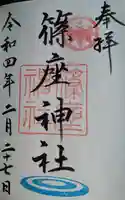 奉拝
篠座神社
令和四年二月二十七日